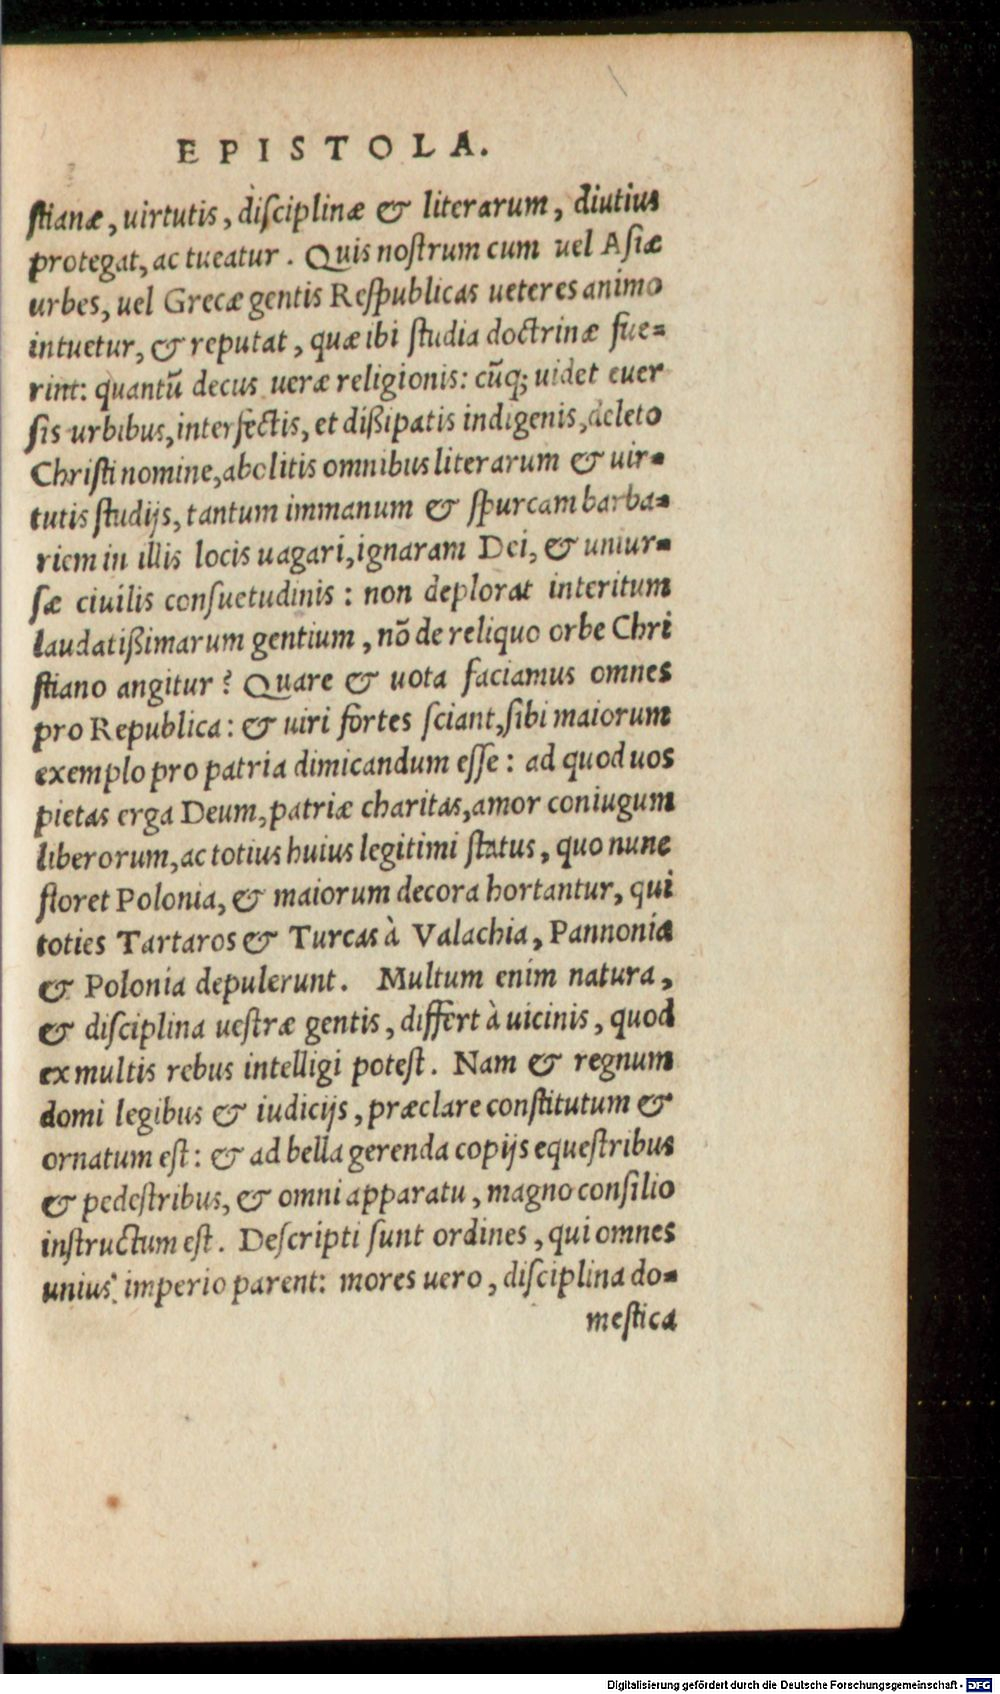 EPISTOLA.
ſtianæ, uirtutis, diſciplinæ & literarum, diutius
protegat, ac tueatur. Quis noſtrum cum uel Aſiæ
urbes, uel Grecæ gentis Reſpublicas ueteres animo
intuetur, & reputat, quæ ibi ſtudia doctrinæ fue-
rint: quantũ decus ueræ religionis: cũq; uidet euer
ſis urbibus, interfectis, et dißipatis indigenis, deleto
Chriſti nomine, abolitis omnibus literarum & uir-
tutis ſtudijs, tantum immanum & ſpurcam barba-
riem in illis locis uagari, ignaram Dei, & uniuer-
ſæ ciuilis conſuetudinis: non deplorat interitum
laudatißimarum gentium, nõ de reliquo orbe Chri
ſtiano angitur? Quare & uota faciamus omnes
pro Republica: & uiri fortes ſciant, ſibi maiorum
exemplo pro patria dimicandum eſſe: ad quod uos
pietas erga Deum, patriæ charitas, amor coniugum
liberorum, ac totius huius legitimi ſtatus, quo nunc
floret Polonia, & maiorum decora hortantur, qui
toties Tartaros & Turcas à Valachia, Pannonia
& Polonia depulerunt. Multum enim natura,
& diſciplina ueſtræ gentis, differt à uicinis, quod
ex multis rebus intelligi poteſt. Nam & regnum
domi legibus & iudicijs, præclare conſtitutum &
ornatum eſt: & ad bella gerenda copijs equeſtribus
& pedeſtribus, & omni apparatu, magno conſilio
inſtructum eſt. Deſcripti ſunt ordines, qui omnes
unius imperio parent: mores uero, diſciplina do-
meſtica
Digitalisierung gefördert durch die Deutsche Forschungsgemeinschaft - DFG